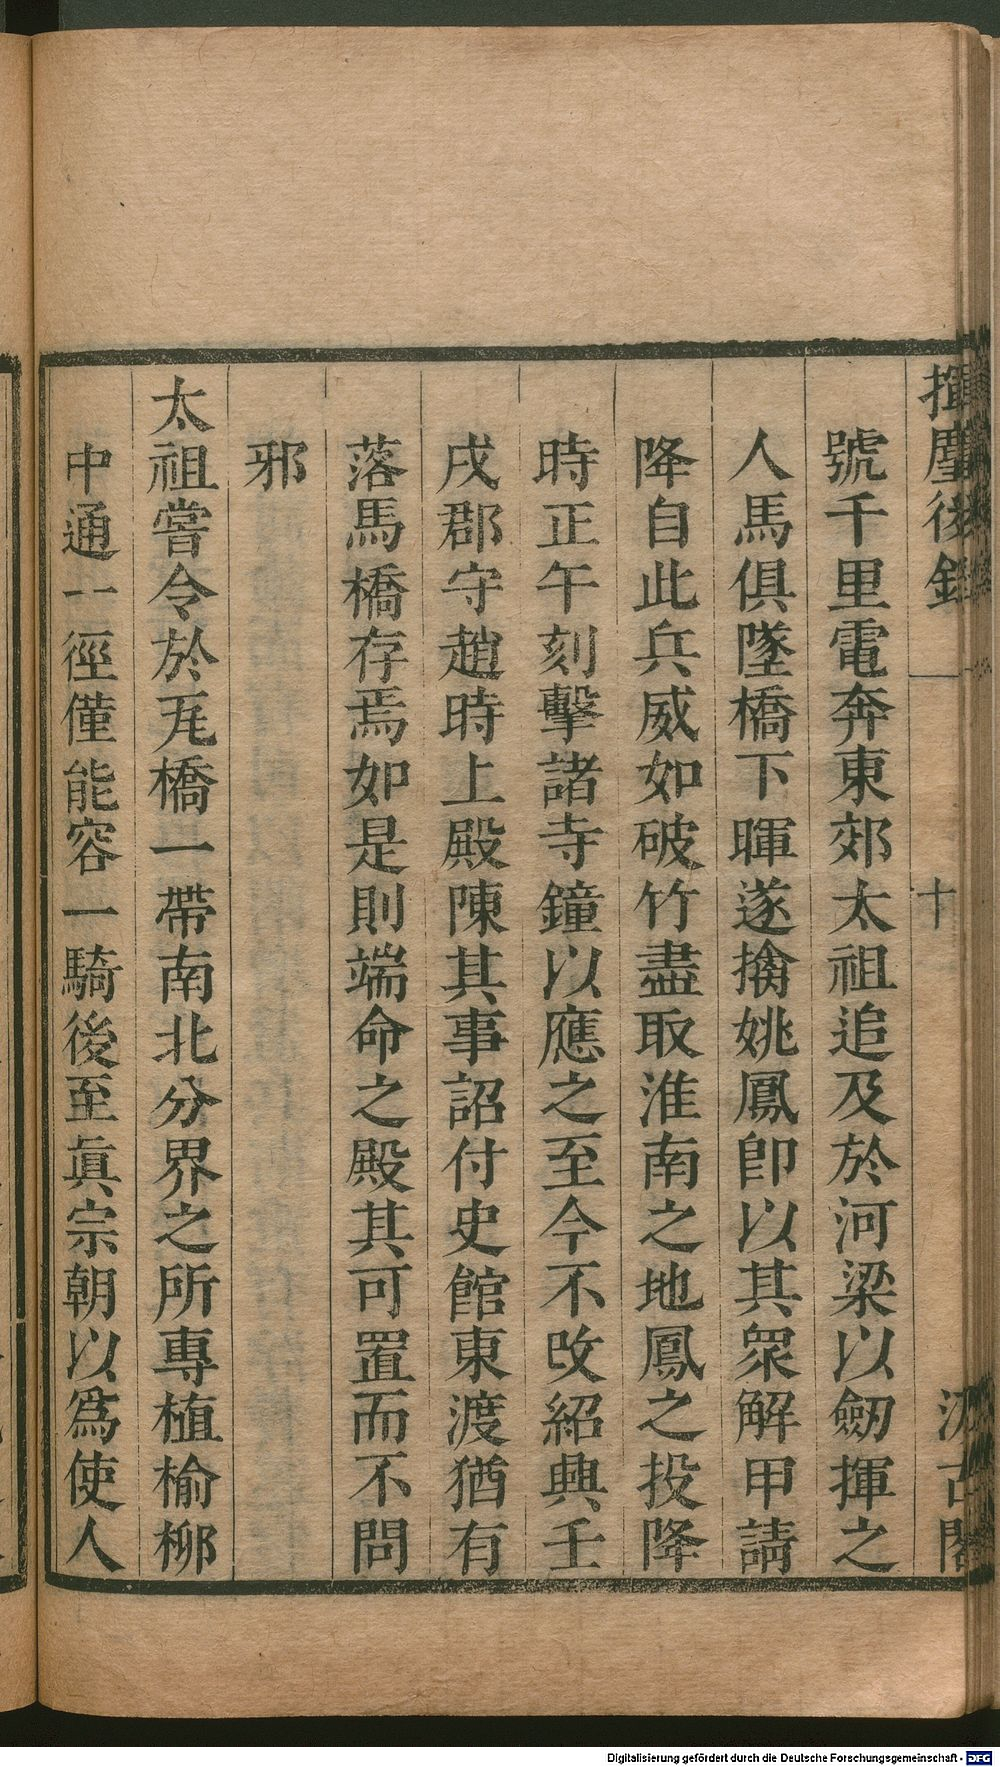 揮麈後錄 一 十 汲古閣
號千里電奔東郊太祖追及於河梁以劒揮之
人馬俱墜橋下暉遂擒姚鳳卽以其衆解甲請
降自此兵威如破竹盡取淮南之地鳳之投降
時正午刻擊諸寺鐘以應之至今不改紹興壬
戌郡守趙時上殿陳其事詔付史館東渡猶有
落馬橋存焉如是則端命之殿其可置而不問
邪
太祖嘗令於瓦橋一帶南北分界之所專植榆柳
中通一徑僅能容一騎後至眞宗朝以爲使人
Digitalisierung gefördert durch die Deutsche Forschungsgemeinschaft - DFG